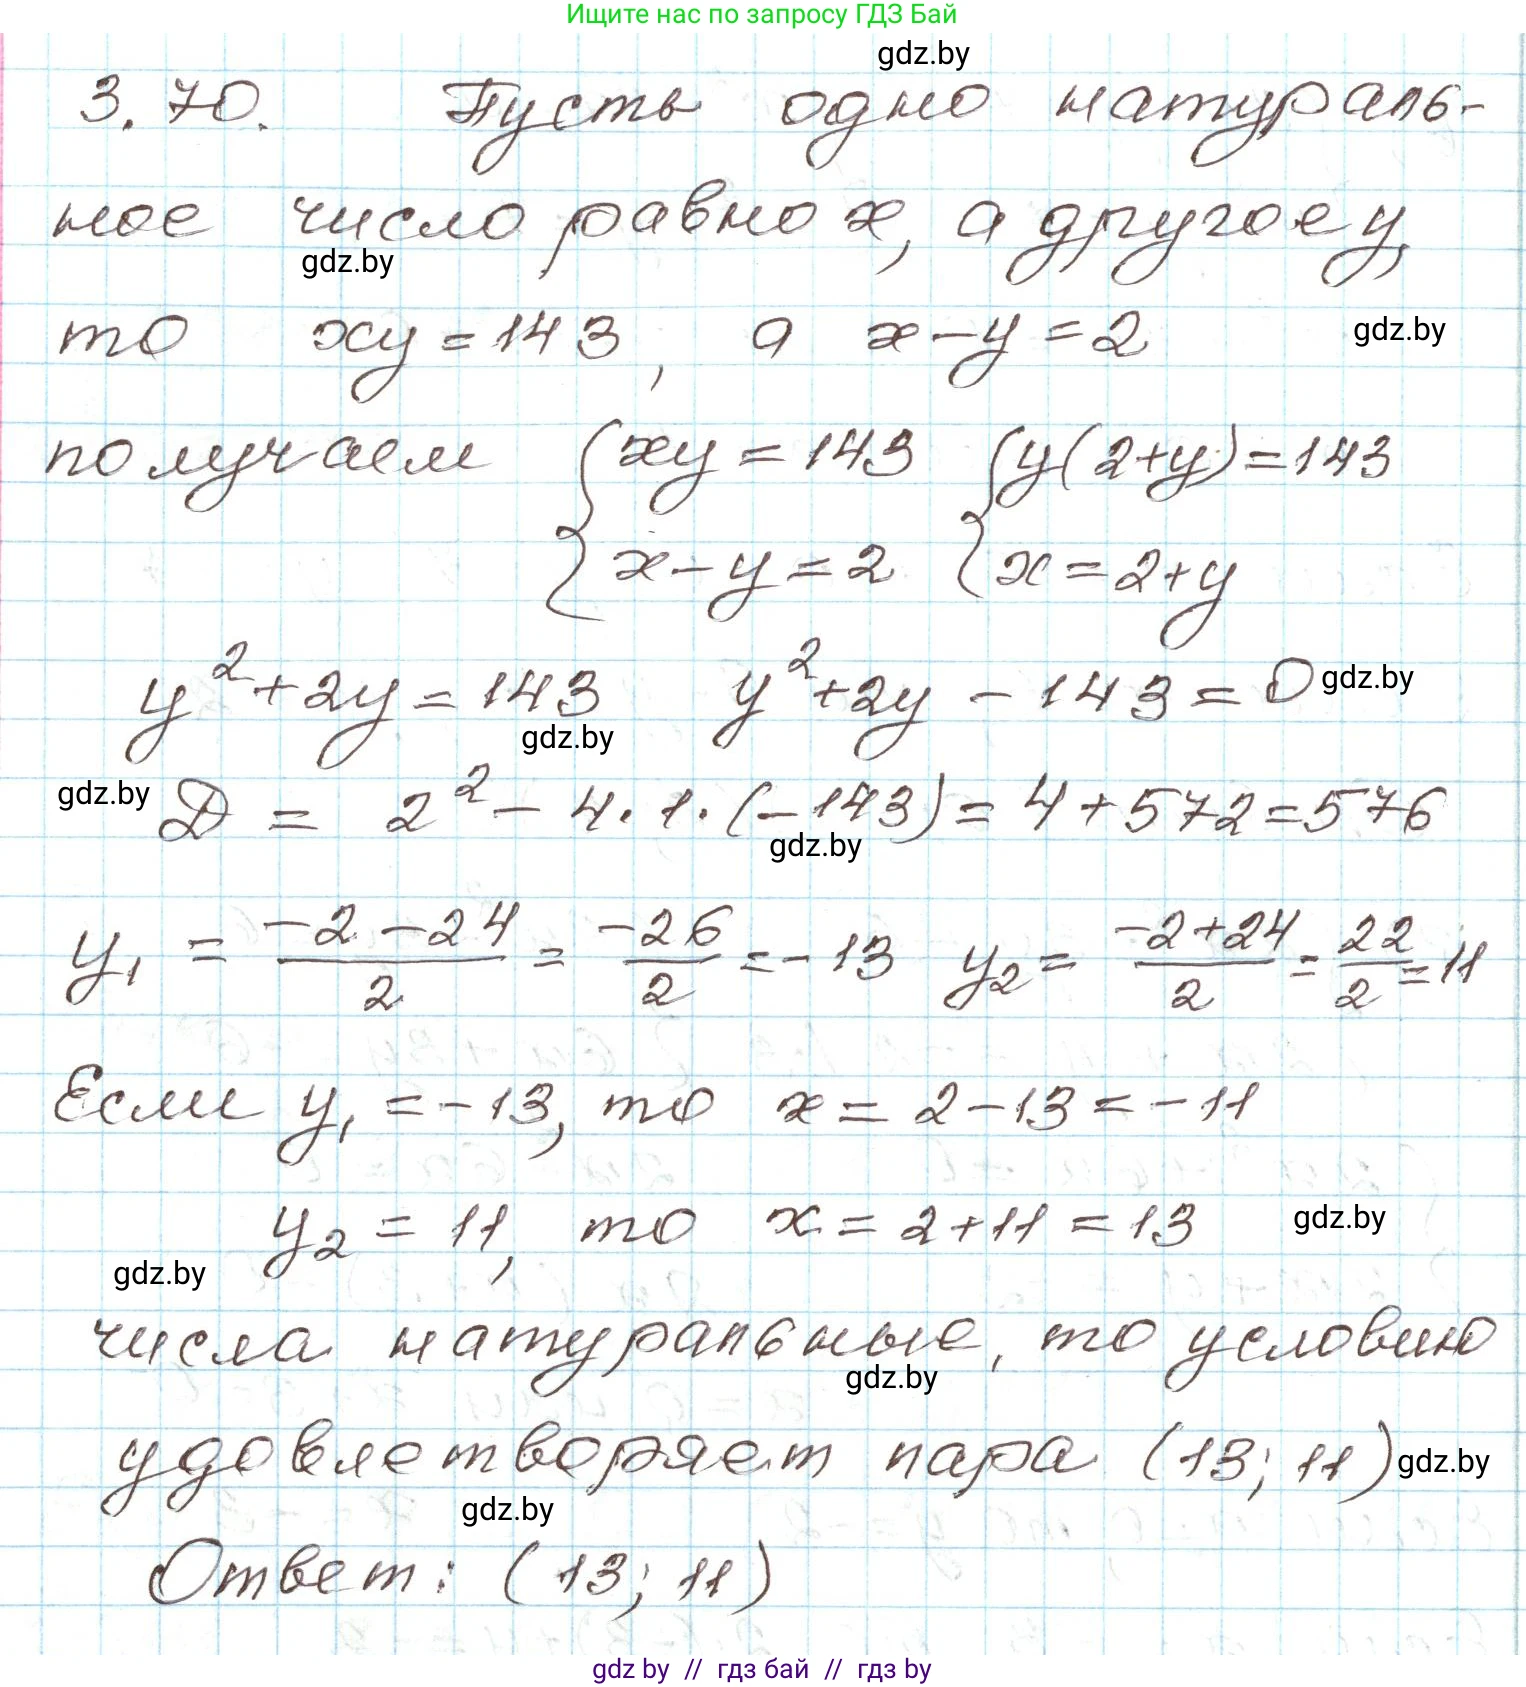 Ищите нас по запросу ГДЗ Бай
gdz.by
3.70. Пусть одно натураль-
ное число равно x, а другое y,
gdz.by
то xy = 143, а x - y = 2
gdz.by
получаем { xy = 143 { y(2+y) = 143
x - y = 2 x = 2 + y
y² + 2y = 143 y² + 2y - 143 = 0
gdz.by
gdz.by
gdz.by
Д = 2² - 4 · 1 · (-143) = 4 + 572 = 576
gdz.by
y₁ = (-2 - 24)/2 = -26/2 = -13 y₂ = (-2 + 24)/2 = 22/2 = 11
Если y₁ = -13, то x = 2 - 13 = -11
y₂ = 11, то x = 2 + 11 = 13
gdz.by
gdz.by
числа натуральные, то условию
gdz.by
удовлетворяет пара (13; 11)
gdz.by
gdz.by
Ответ: (13; 11)
gdz by // гдз бай // гдз by